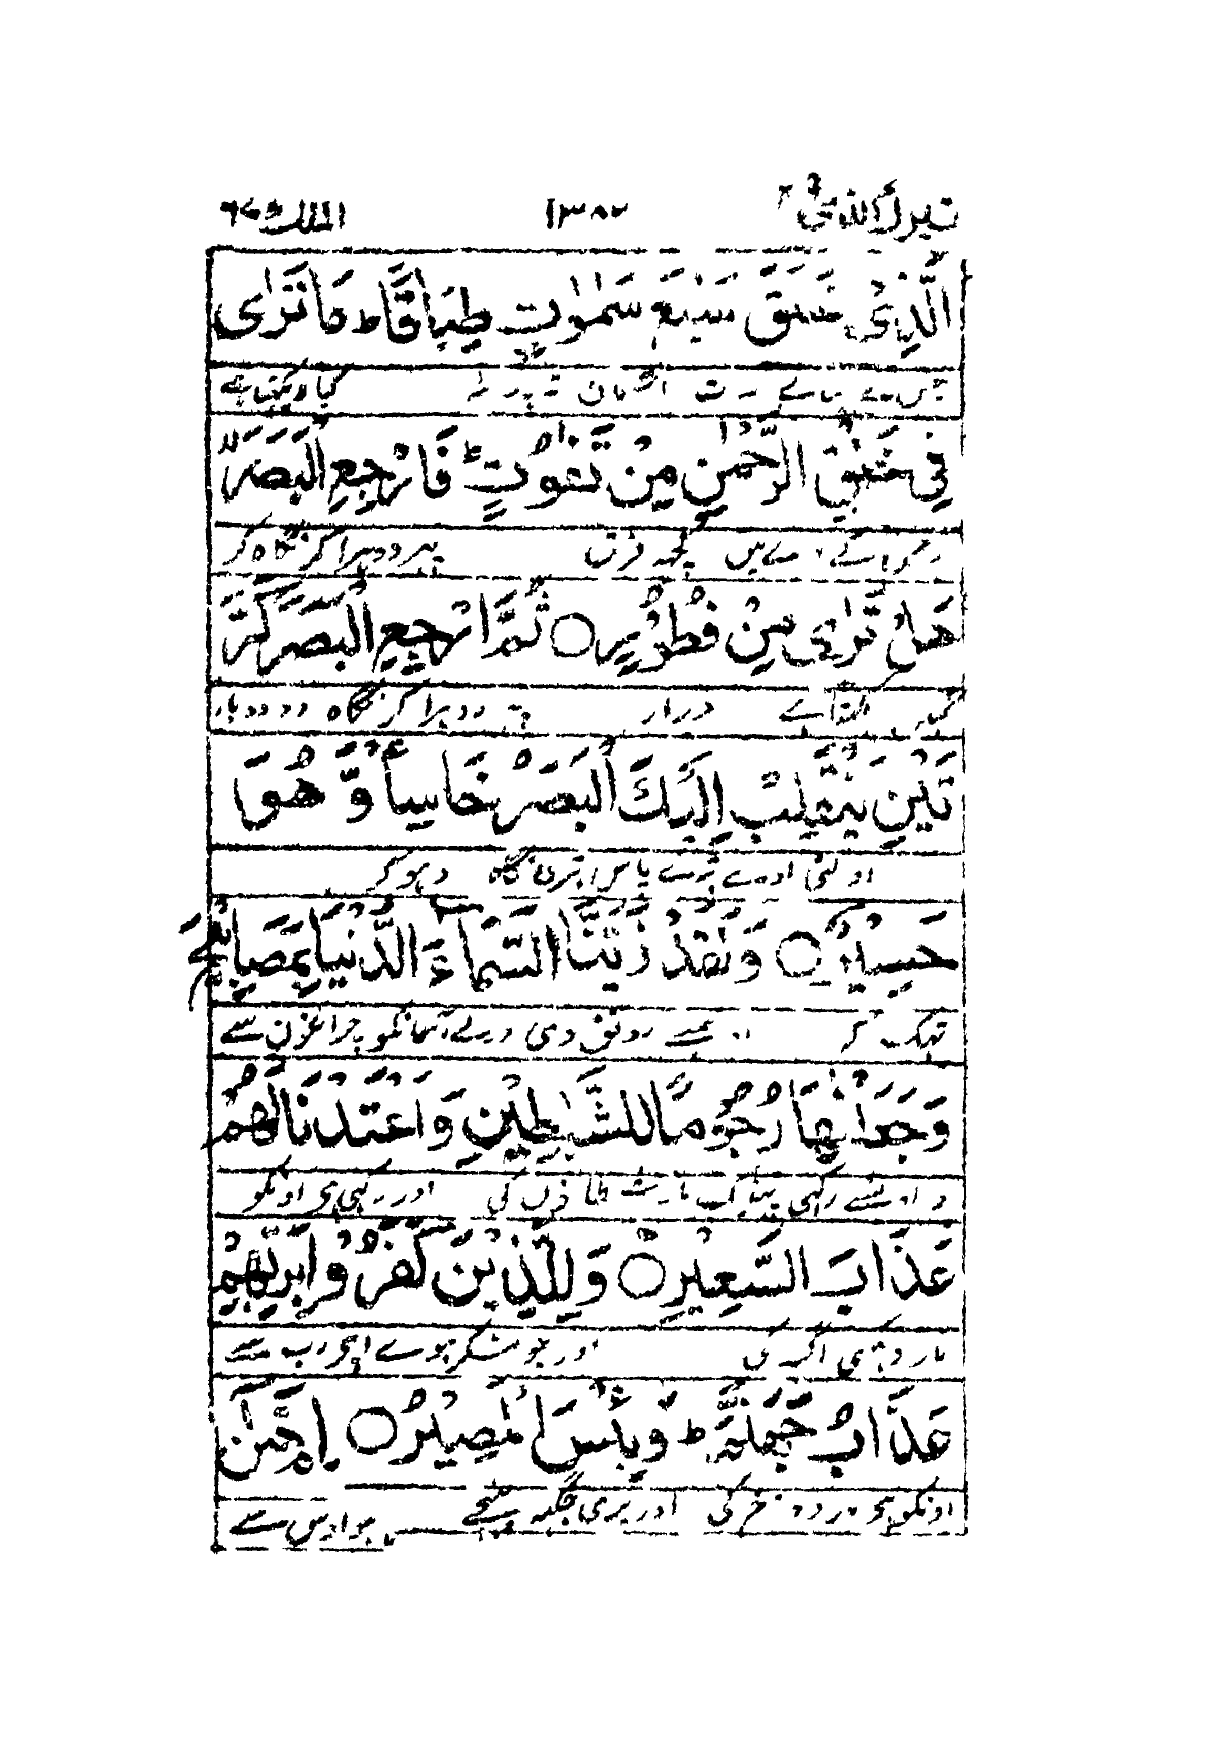 تبرك الذي ٢٩ ١٣٨٧ الملك ٦٧
الَّذِىْ خَلَقَ سَبْعَ سَمٰوٰتٍ طِبَاقًا ط مَا تَرٰى
جس نے بنائے سات آسمان تہ پر تہ کیا دیکھتا ہے
فِىْ خَلْقِ الرَّحْمٰنِ مِنْ تَفٰوُتٍ ط فَارْجِعِ الْبَصَرَ لا
رحمن کے بنائے میں کچھ فرق پھر دوہرا کر نگاہ کر
هَلْ تَرٰى مِنْ فُطُوْرٍ ○ ثُمَّ ارْجِعِ الْبَصَرَ كَرَّ
کہیں دیکھتا ہے دراڑ پھر دوہرا کر نگاہ دو دو بار
تَيْنِ يَنْقَلِبْ اِلَيْكَ الْبَصَرُ خَاسِئًا وَّ هُوَ
اولٹی آوے تیرے پاس تیری نگاہ رد ہو کر
حَسِيْرٌ ○ وَلَقَدْ زَيَّنَّا السَّمَآءَ الدُّنْيَا بِمَصَابِيْحَ
تھک کر اور ہمنے رونق دی ورلے آسمانکو چراغون سے
وَجَعَلْنٰهَا رُجُوْمًا لِّلشَّيٰطِيْنِ وَاَعْتَدْنَا لَهُمْ
و اونسے رکھی پھینک مار شیطانون کی اور رکھی ہی اونکو
عَذَابَ السَّعِيْرِ ○ وَلِلَّذِيْنَ كَفَرُوْا بِرَبِّهِمْ
مار دہکتی آگ کی اور جو منکر ہوے اپنے رب سے
عَذَابُ جَهَنَّمَ ط وَبِئْسَ الْمَصِيْرُ ○ اِمَّنْ
اونکو ہے مار دوزخ کی اور بری جگہ پہنچے